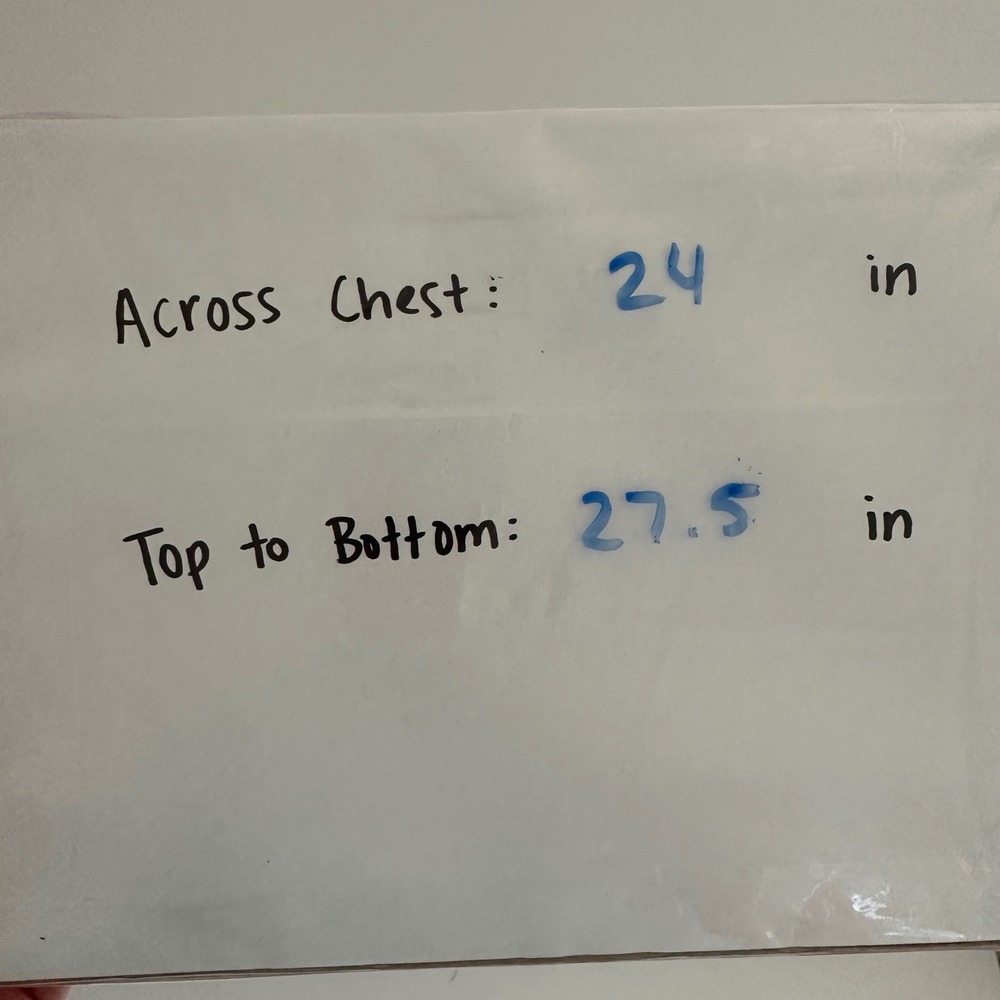 Across Chest: 24 in
Top to Bottom: 27.5 in